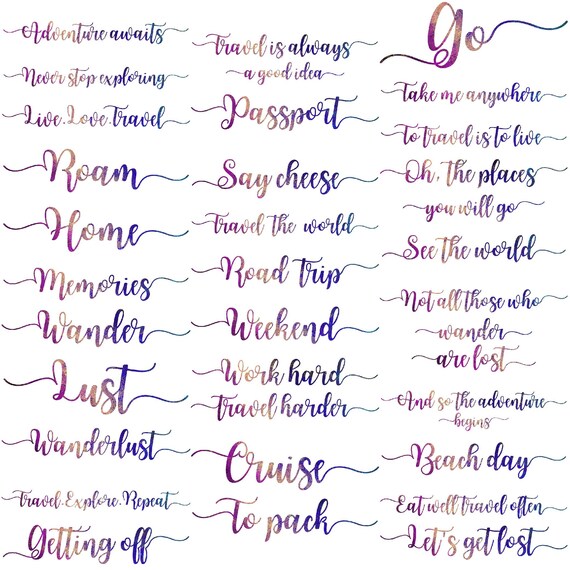 Adventure awaits
Never stop exploring
Live.Love.Travel
Roam
Home
Memories
Wander
Lust
Wanderlust
Travel.Explore.Repeat
Getting off
Travel is always
a good idea
Passport
Say cheese
Travel the world
Road trip
Weekend
Work hard
travel harder
Cruise
To pack
Go
Take me anywhere
To travel is to live
Oh, the places
you will go
See the world
Not all those who
wander
are lost
And so the adventure
begins
Beach day
Eat well travel often
Let's get lost